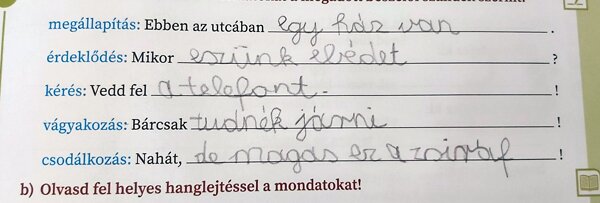 megállapítás: Ebben az utcában egy ház van.
érdeklődés: Mikor eszünk ebédet?
kérés: Vedd fel a telefont.!
vágyakozás: Bárcsak tudnék járni!
csodálkozás: Nahát, de magas ez a zsiraf!
b) Olvasd fel helyes hanglejtéssel a mondatokat!